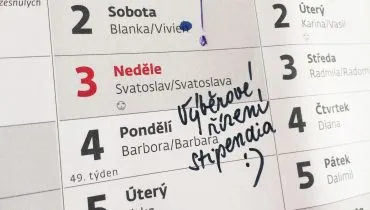 zesnulých
2 Sobota
Blanka/Vivien
3 Neděle
Svatoslav/Svatoslava
4 Pondělí
Barbora/Barbara
49. týden
5 Úterý
Výběrové
řízení
stipendia
:)
2 Úterý
Karina/Vasil
3 Středa
Radmila/Radom
4 Čtvrtek
Diana
5 Pátek
Dalimil